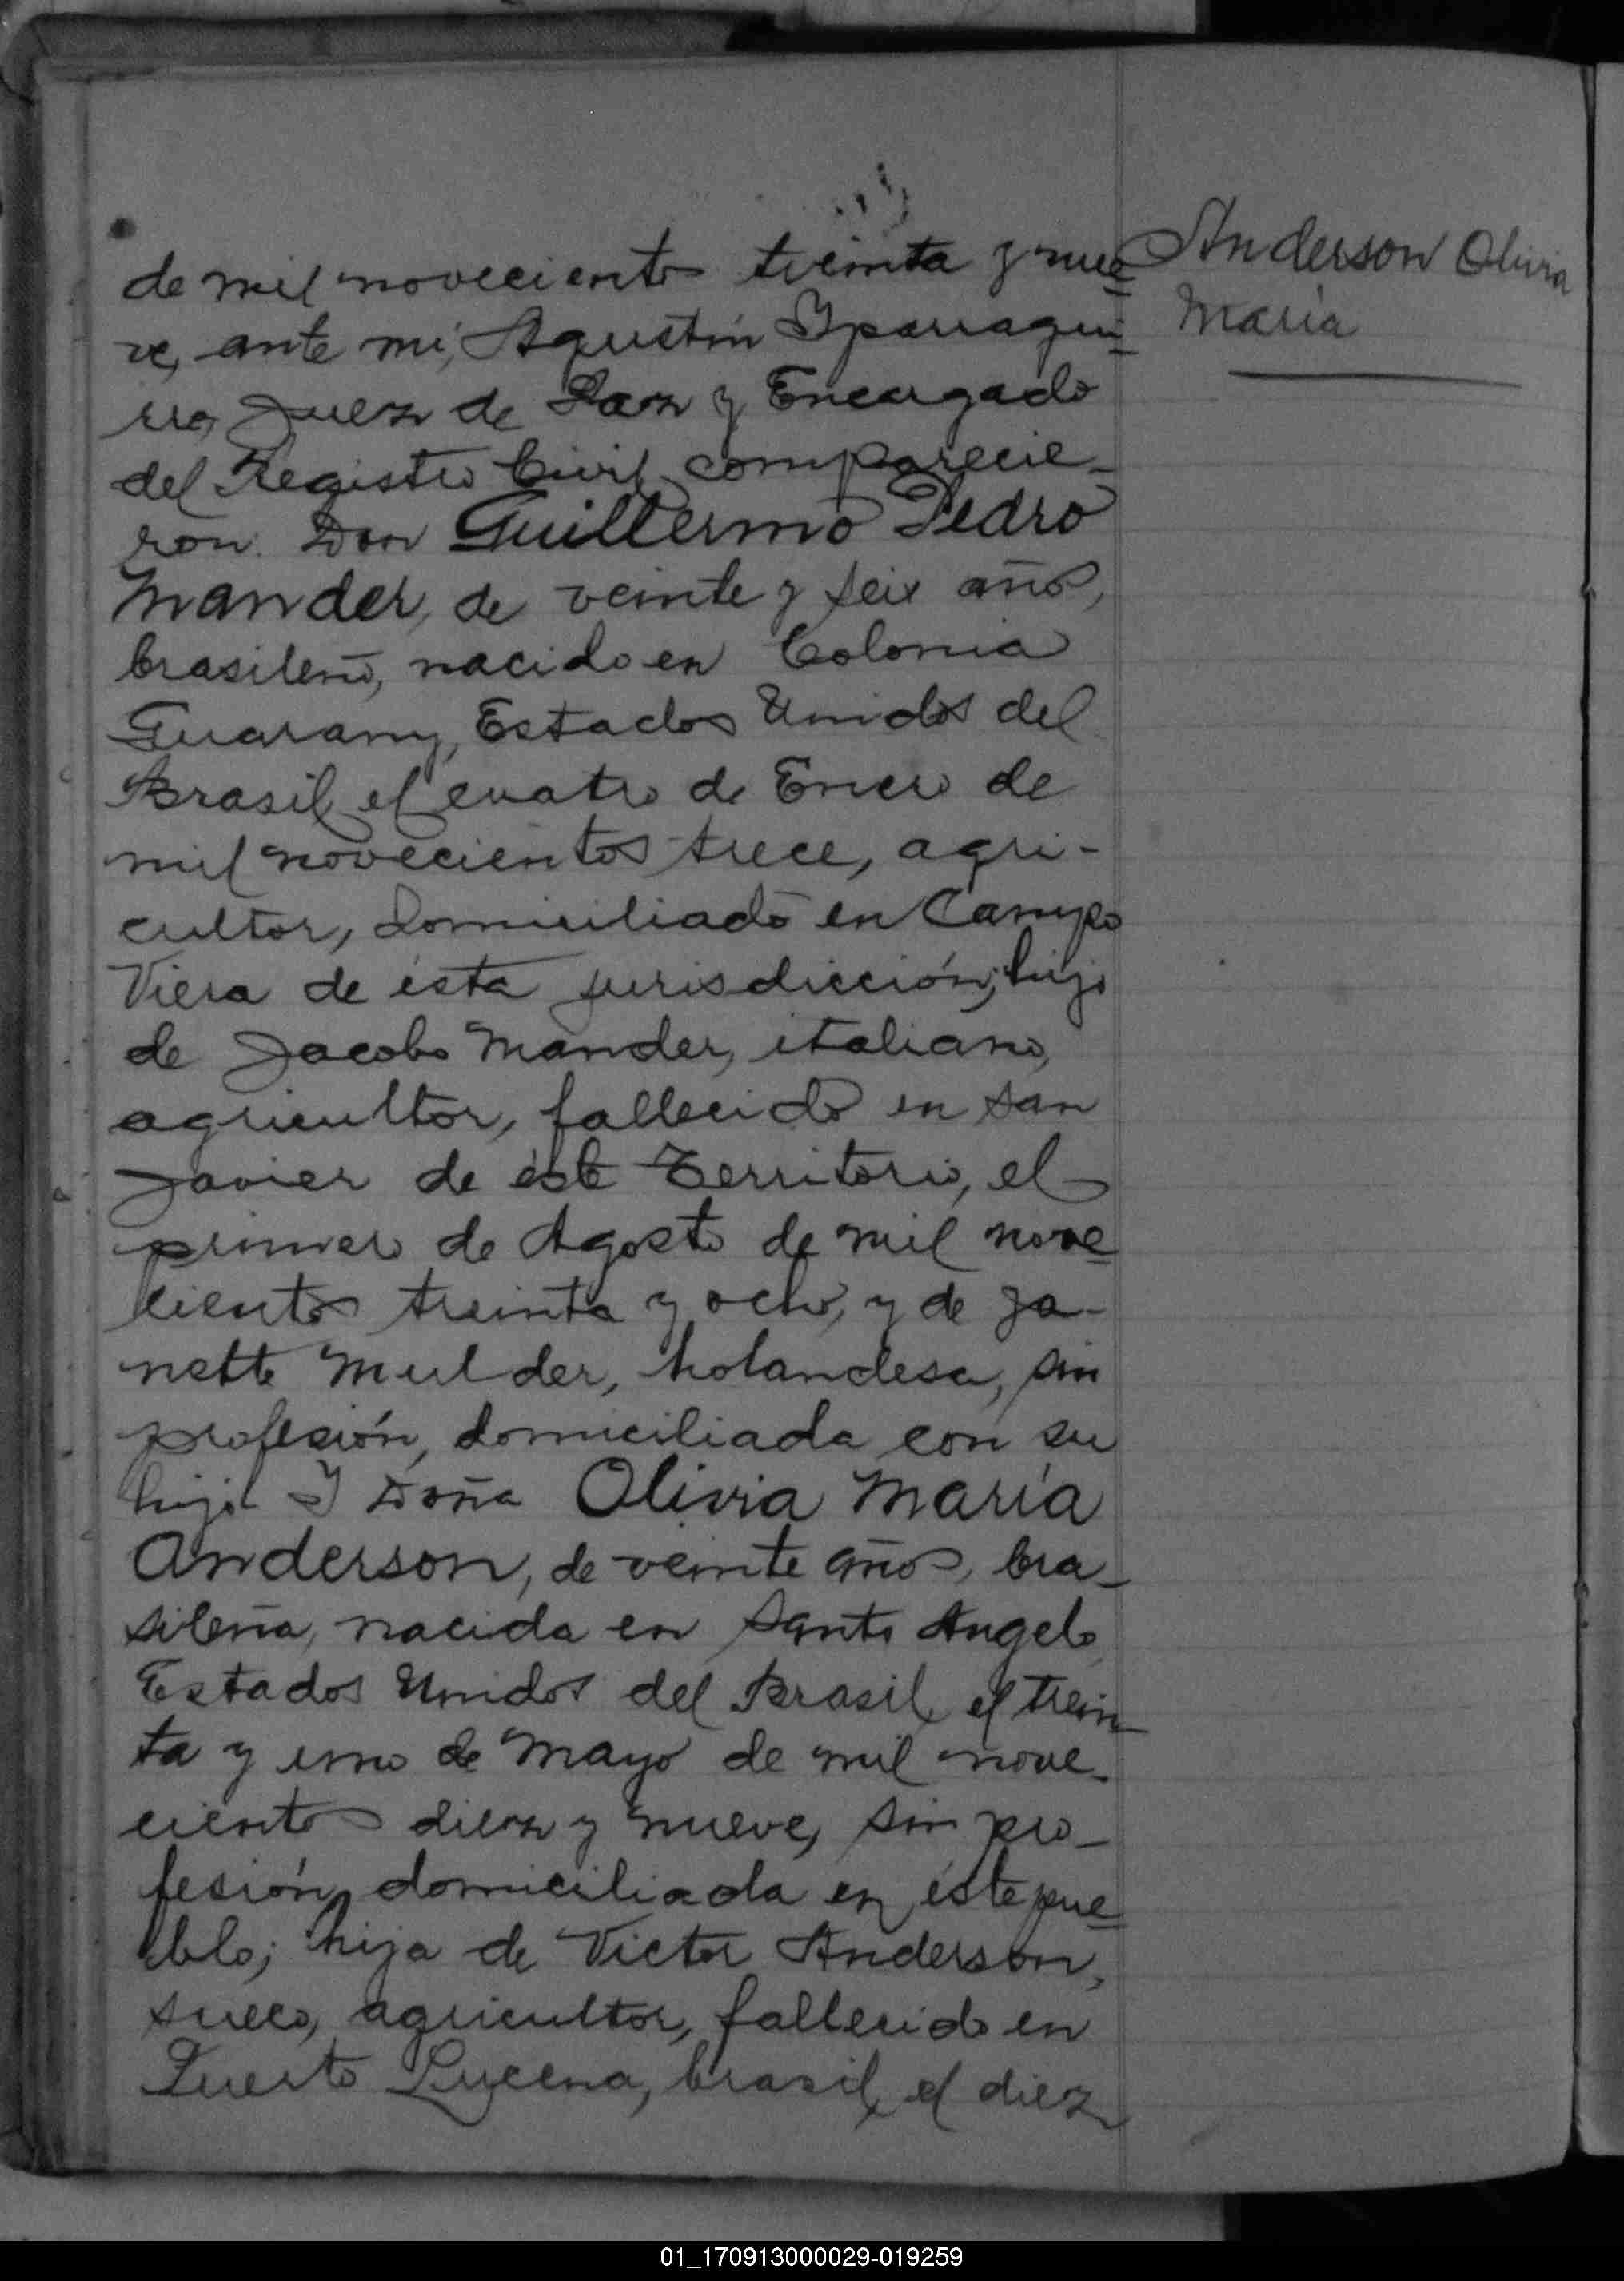 de mil novecientos treinta y nue=
ve, ante mi, Agustín Yparragui=
rre, Juez de Paz y Encargado
del Registro Civil, comparecie-
ron: Don Guillermo Pedro
Mander, de veinte y seis años,
brasileño, nacido en Colonia
Guarany, Estados Unidos del
Brasil, el cuatro de Enero de
mil novecientos trece, agri-
cultor, domiciliado en Campo
Viera de ésta jurisdicción; hijo
de Jacobo Mander, italiano,
agricultor, fallecido en San
Javier de éste Territorio, el
primero de Agosto de mil nove
cientos treinta y ocho, y de Ja-
nette Mulder, holandesa, sin
profesión, domiciliada con su
hijo Y Doña Olivia María
Anderson, de veinte años, bra-
sileña, nacida en Santo Angelo,
Estados Unidos del Brasil, el trein-
ta y uno de Mayo de mil nove-
cientos diez y nueve, sin pro-
fesión, domiciliada en éste pue=
blo; hija de Victor Anderson,
sueco, agricultor, fallecido en
Puerto Lucena, brasil, el diez
Anderson Olivia
María
01_170913000029-019259